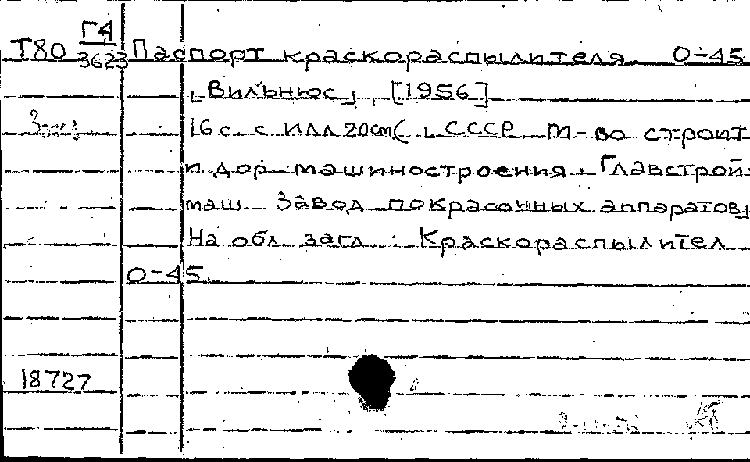 Г4
Т80 3623 Паспорт краскораспылителя О-45
[Вильнюс], [1956]
16 с. с илл 20см (СССР М-во строит
и дор машиностроения. Главстрой-
маш Завод покрасочных аппаратов)
На обл загл: Краскораспылител
О-45
18727